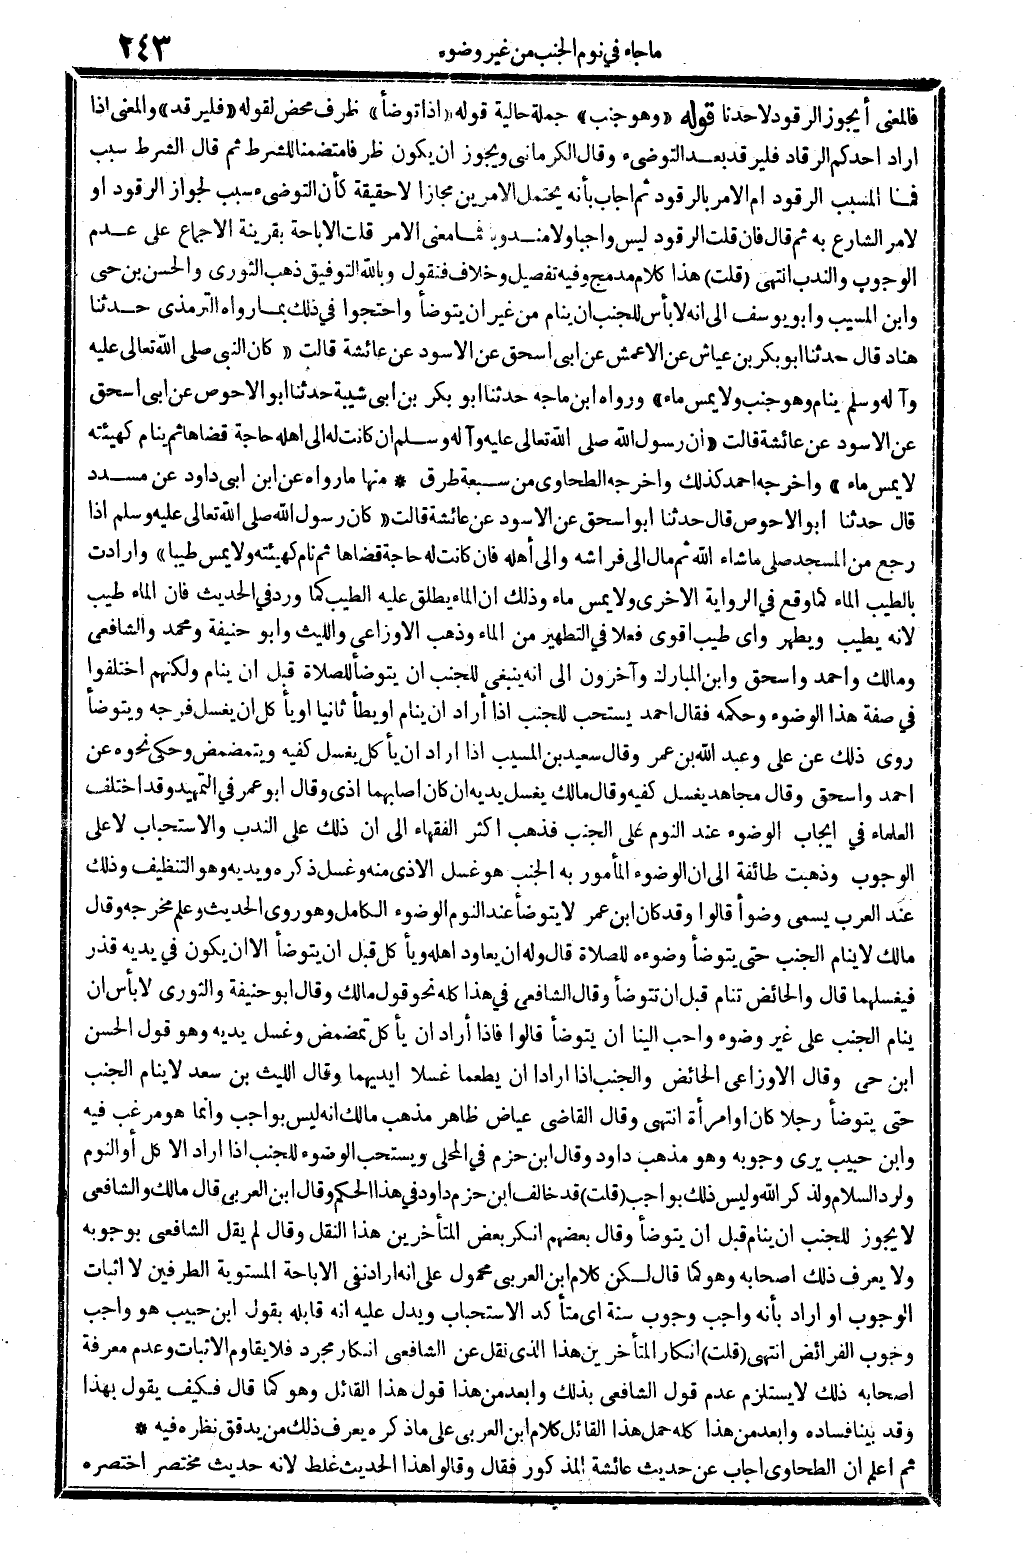 ماجاء في نوم الجنب من غير وضوء ٢٤٣
فالمعنى أيجوز الرقود لاحدنا قوله «وهو جنب» جملة حالية قوله «اذا توضأ» ظرف محض لقوله «فليرقد» والمعنى اذا
اراد احدكم الرقاد فليرقد بعد التوضىء وقال الكرماني ويجوز ان يكون ظرفا متضمنا للشرط ثم قال الشرط سبب
فما المسبب الرقود ام الامر بالرقود ثم اجاب بأنه يحتمل الامرين مجازا لا حقيقة كأن التوضىء سبب لجواز الرقود او
لامر الشارع به ثم قال فان قلت الرقود ليس واجبا ولا مندوبا فما معنى الامر قلت الاباحة بقرينة الاجماع على عدم
الوجوب والندب انتهى (قلت) هذا كلام مدمج وفيه تفصيل وخلاف فنقول وبالله التوفيق ذهب الثورى والحسن بن حى
وابن المسيب وابو يوسف الى انه لا بأس للجنب ان ينام من غير ان يتوضأ واحتجوا في ذلك بما رواه الترمذى حدثنا
هناد قال حدثنا ابو بكر بن عياش عن الاعمش عن ابى اسحق عن الاسود عن عائشة قالت «كان النبى صلى الله تعالى عليه
وآله وسلم ينام وهو جنب ولا يمس ماء» ورواه ابن ماجه حدثنا ابو بكر بن ابى شيبة حدثنا ابو الاحوص عن ابى اسحق
عن الاسود عن عائشة قالت «ان رسول الله صلى الله تعالى عليه وآله وسلم ان كانت له الى اهله حاجة قضاها ثم ينام كهيئته
لا يمس ماء» واخرجه احمد كذلك واخرجه الطحاوى من سبعة طرق * منها ما رواه عن ابن ابى داود عن مسدد
قال حدثنا ابو الاحوص قال حدثنا ابو اسحق عن الاسود عن عائشة قالت «كان رسول الله صلى الله تعالى عليه وسلم اذا
رجع من المسجد صلى ماشاء الله ثم مال الى فراشه والى أهله فان كانت له حاجة قضاها ثم نام كهيئته ولا يمس طيبا» وارادت
بالطيب الماء كما وقع في الرواية الاخرى ولا يمس ماء وذلك ان الماء يطلق عليه الطيب كما ورد في الحديث فان الماء طيب
لانه يطيب ويطهر واى طيب اقوى فعلا في التطهير من الماء وذهب الاوزاعى والليث وابو حنيفة ومحمد والشافعى
ومالك واحمد واسحق وابن المبارك وآخرون الى انه ينبغى للجنب ان يتوضأ للصلاة قبل ان ينام ولكنهم اختلفوا
في صفة هذا الوضوء وحكمه فقال احمد يستحب للجنب اذا أراد ان ينام او يطأ ثانيا او يأ كل ان يغسل فرجه ويتوضأ
روى ذلك عن على وعبد الله بن عمر وقال سعيد بن المسيب اذا اراد ان يأ كل يغسل كفيه ويتمضمض وحكى نحوه عن
احمد واسحق وقال مجاهد يغسل كفيه وقال مالك يغسل يديه ان كان اصابهما اذى وقال ابو عمر في التمهيد وقد اختلف
العلماء في ايجاب الوضوء عند النوم على الجنب فذهب اكثر الفقهاء الى ان ذلك على الندب والاستحباب لا على
الوجوب وذهبت طائفة الى ان الوضوء المأمور به الجنب هو غسل الاذى منه وغسل ذكره ويديه وهو التنظيف وذلك
عند العرب يسمى وضوأ قالوا وقد كان ابن عمر لا يتوضأ عند النوم الوضوء الكامل وهو روى الحديث وعلم مخرجه وقال
مالك لا ينام الجنب حتى يتوضأ وضوءه للصلاة قال وله ان يعاود اهله ويأ كل قبل ان يتوضأ الا ان يكون في يديه قذر
فيغسلهما قال والحائض تنام قبل ان تتوضأ وقال الشافعى في هذا كله نحو قول مالك وقال ابو حنيفة والثورى لا بأس ان
ينام الجنب على غير وضوء واحب الينا ان يتوضأ قالوا فاذا أراد ان يأ كل تمضمض وغسل يديه وهو قول الحسن
ابن حى وقال الاوزاعى الحائض والجنب اذا ارادا ان يطعما غسلا ايديهما وقال الليث بن سعد لا ينام الجنب
حتى يتوضأ رجلا كان او امرأة انتهى وقال القاضى عياض ظاهر مذهب مالك انه ليس بواجب وانما هو مرغب فيه
وابن حبيب يرى وجوبه وهو مذهب داود وقال ابن حزم في المحلى ويستحب الوضوء للجنب اذا اراد الا كل أو النوم
ولرد السلام ولذكر الله وليس ذلك بواجب (قلت) قد خالف ابن حزم داود في هذا الحكم وقال ابن العربى قال مالك والشافعى
لا يجوز للجنب ان ينام قبل ان يتوضأ وقال بعضهم انكر بعض المتأخرين هذا النقل وقال لم يقل الشافعى بوجوبه
ولا يعرف ذلك اصحابه وهو كما قال لكن كلام ابن العربى محمول على انه اراد نفى الاباحة المستوية الطرفين لا اثبات
الوجوب او اراد بأنه واجب وجوب سنة اى متأكد الاستحباب ويدل عليه انه قابله بقول ابن حبيب هو واجب
وجوب الفرائض انتهى (قلت) انكار المتأخرين هذا الذى نقل عن الشافعى انكار مجرد فلا يقاوم الاثبات وعدم معرفة
اصحابه ذلك لا يستلزم عدم قول الشافعى بذلك وابعد من هذا قول هذا القائل وهو كما قال فكيف يقول بهذا
وقد بينا فساده وابعد من هذا كله حمل هذا القائل كلام ابن العربى على ما ذكره يعرف ذلك من يدقق نظره فيه *
ثم أعلم ان الطحاوى اجاب عن حديث عائشة المذكور فقال وقالوا هذا الحديث غلط لانه حديث مختصر اختصره